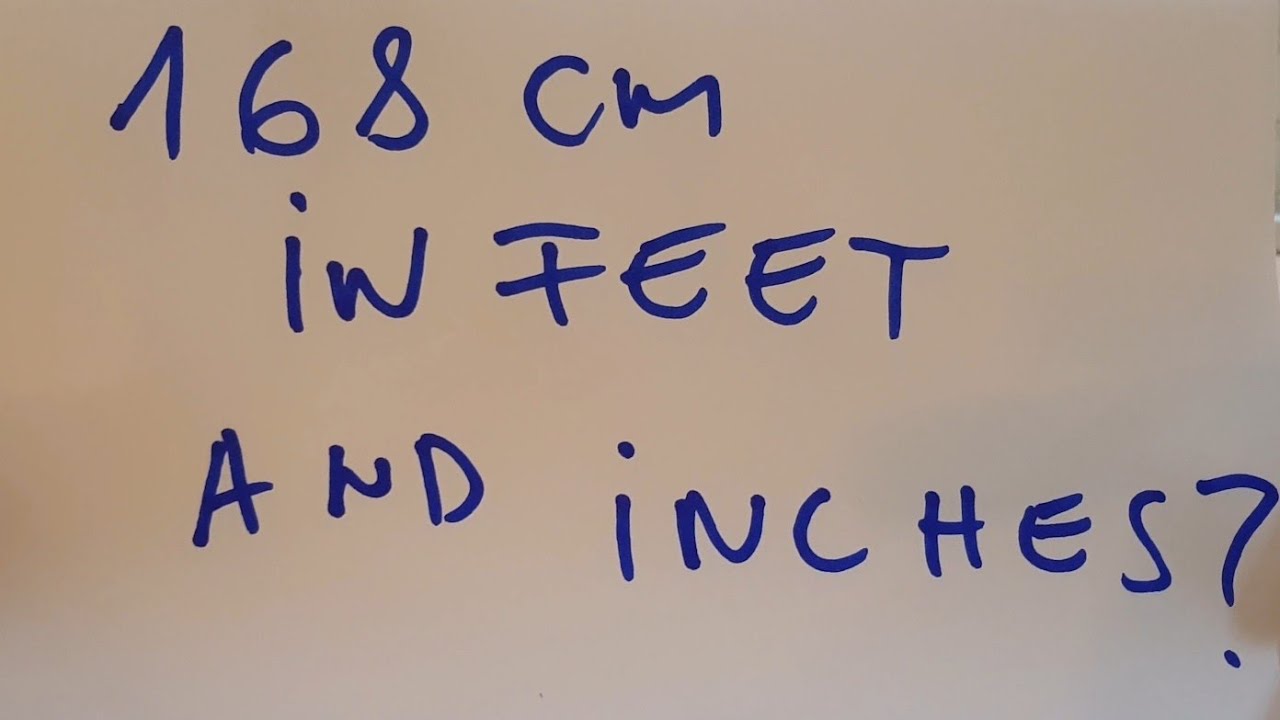 168 cm
iN FEET
AND iNCHES?